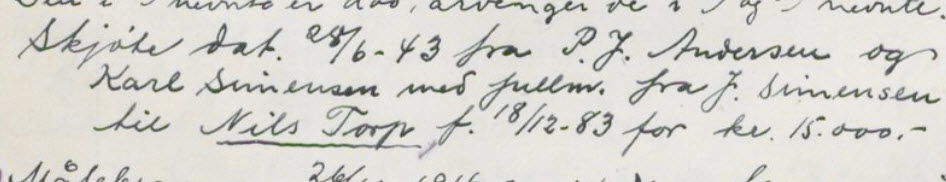 er død, arvenger de i og nevnte.
Skjøte dat. 28/6-43 fra P. J. Andersen og
Karl Simensen med fullm. fra J. Simensen
til Nils Torp f. 18/12-83 for kr. 15.000.-